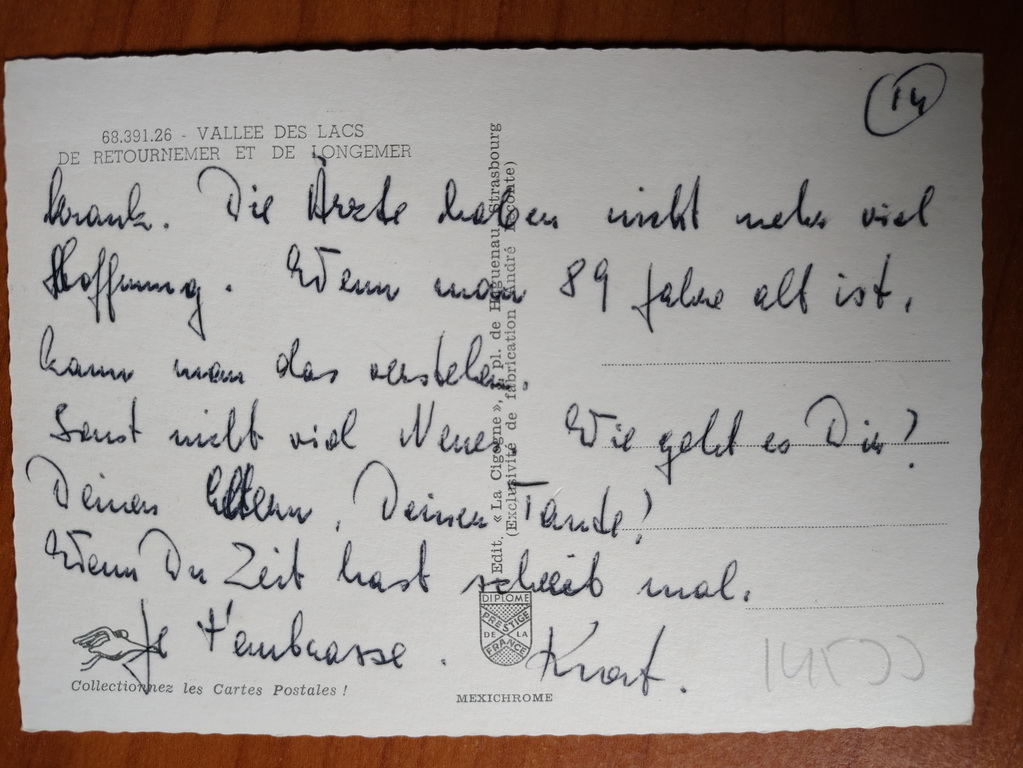 14
68.391.26 - VALLEE DES LACS
DE RETOURNEMER ET DE LONGEMER
krank. Die Ärzte haben nicht mehr viel
Hoffnung. Wenn man 89 Jahre alt ist,
kann man das verstehen.
Sonst nicht viel Neues. Wie geht es Dir?
Deinen Eltern, Deiner Tante?
Wenn Du Zeit hast schreib mal.
Je t'embrasse.
Collectionnez les Cartes Postales !
Edit. « La Cigogne », pl. de Haguenau, Strasbourg
(Exclusivité de fabrication André Leconte)
DIPLOME
PRESTIGE
DE LA
FRANCE
MEXICHROME